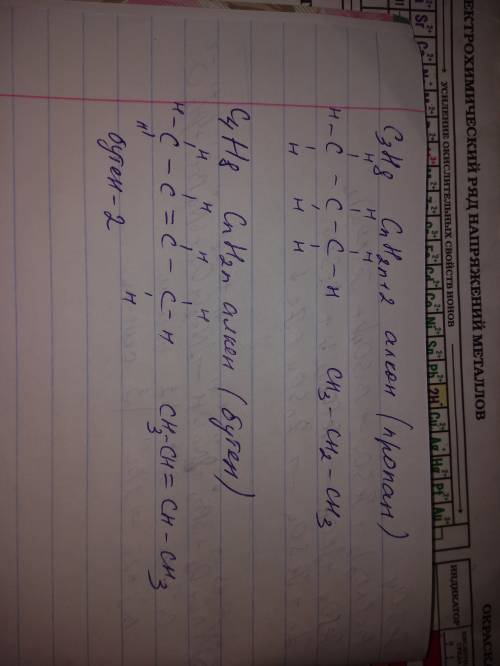 ЕКТРОХИМИЧЕСКИЙ РЯД НАПРЯЖЕНИЙ МЕТАЛЛОВ
УСИЛЕНИЕ ОКИСЛИТЕЛЬНЫХ СВОЙСТВ ИОНОВ
Sr Co Ni Sn Pb 2H Cu Ag Hg Pt Au
ИНДИКАТОР
ОКРАС
C3H8 CnH2n+2 алкан (пропан)
H H H
H - C - C - C - H CH3 - CH2 - CH3
H H H
C4H8 CnH2n алкен (бутен)
H H H H
H - C - C = C - C - H CH3 - CH = CH - CH3
H H
бутен - 2